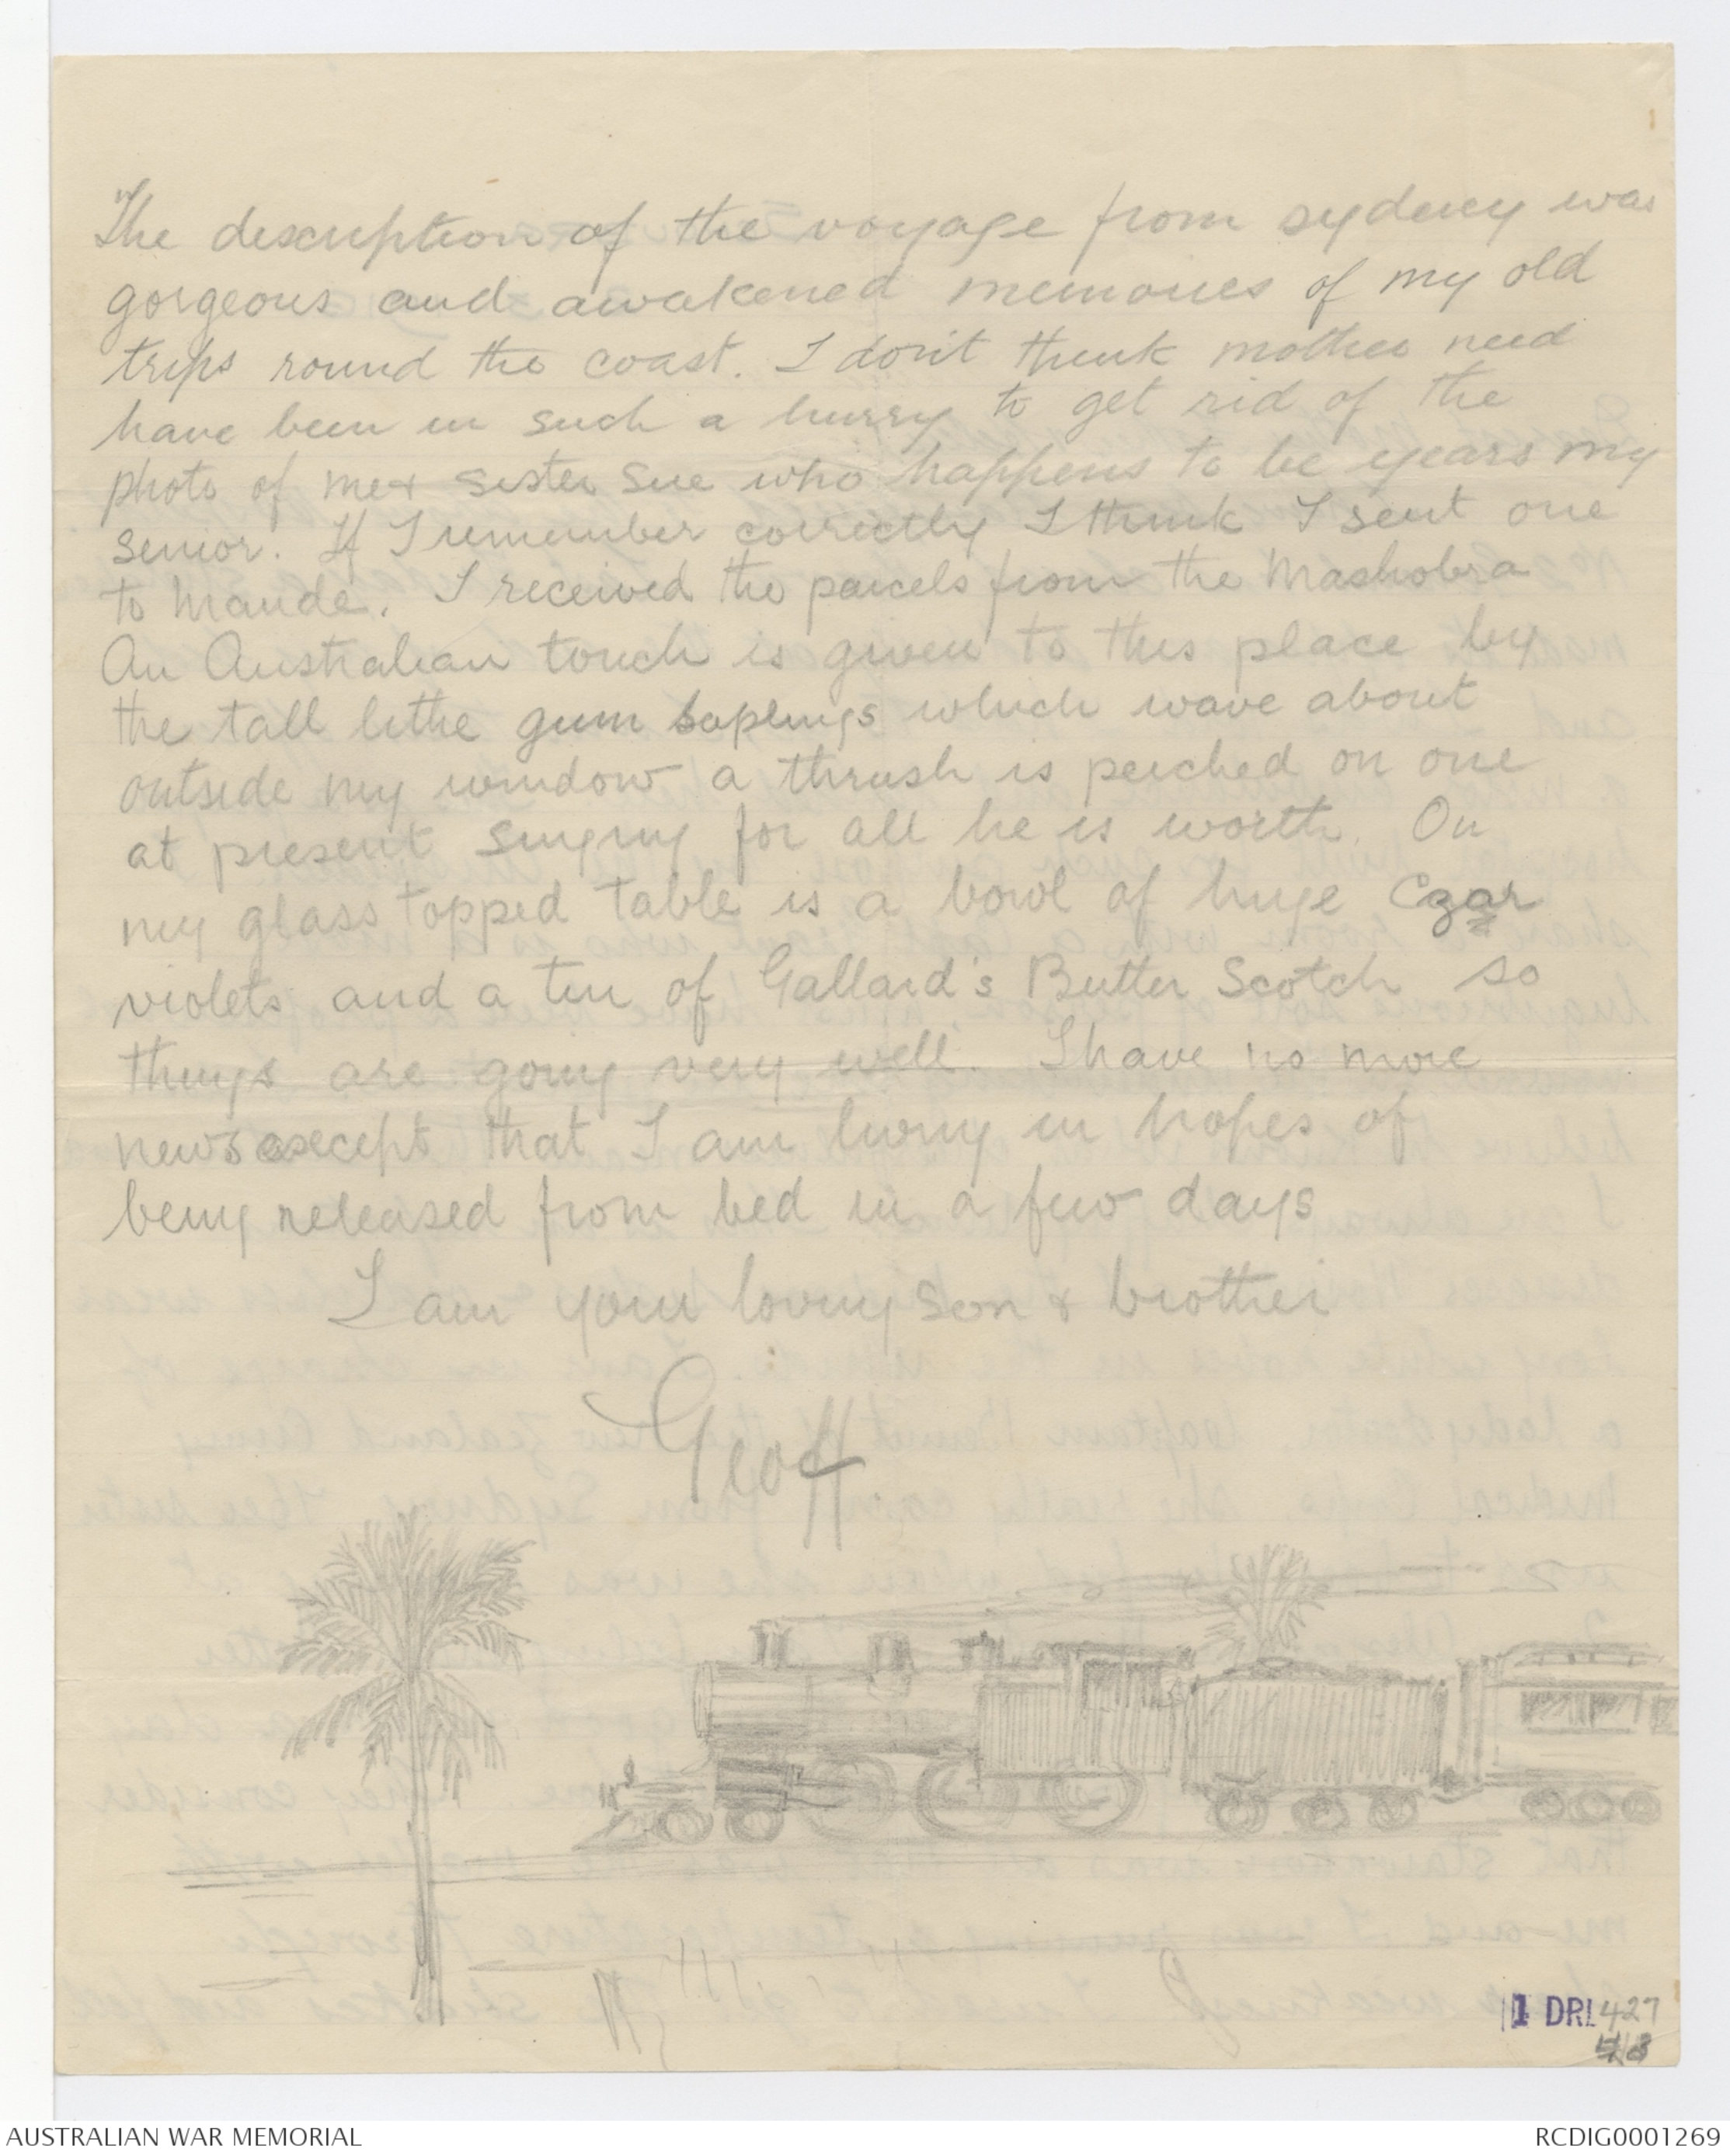 The description of the voyage from sydney was
gorgeous and awakened memories of my old
trips round the coast. I don't think mother need
have been in such a hurry to get rid of the
photo of me & sister Sue who happens to be years my
senior. If I remember correctly I think I sent one
to Maude. I received the parcels from the Mashobra
An Australian touch is given to this place by
the tall lithe gum saplings which wave about
outside my window a thrush is perched on one
at present singing for all he is worth. On
my glass topped table is a bowl of huge Czar
violets and a tin of Gallard's Butter Scotch so
things are going very well. I have no more
news except that I am living in hopes of
being released from bed in a few days
I am your loving son & brother
Geoff
1 DRL 427
AUSTRALIAN WAR MEMORIAL
RCDIG0001269